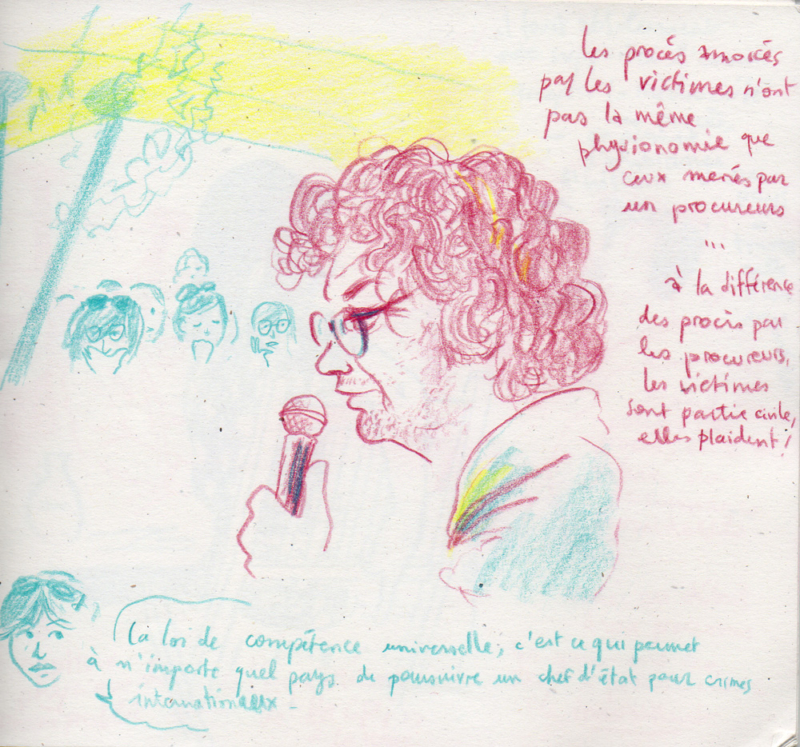 les procès amorcés
par les victimes n'ont
pas la même
physionomie que
ceux menés par
un procureurs
...
à la différence
des procès par
les procureurs,
les victimes
sont partie civile,
elles plaident !
La loi de compétence universelle, c'est ce qui permet
à n'importe quel pays de poursuivre un chef d'état pour crimes
internationaux.